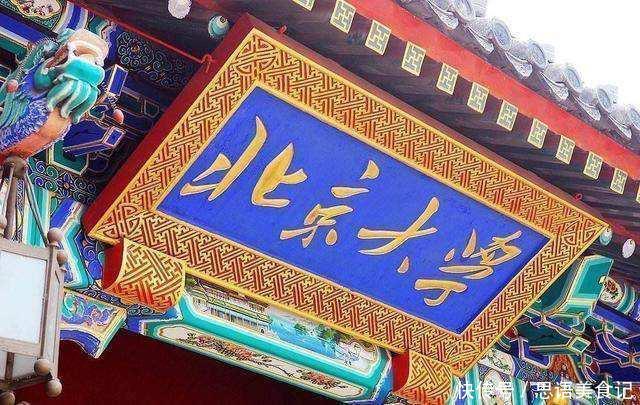 北京大学
快传号/思语美食记